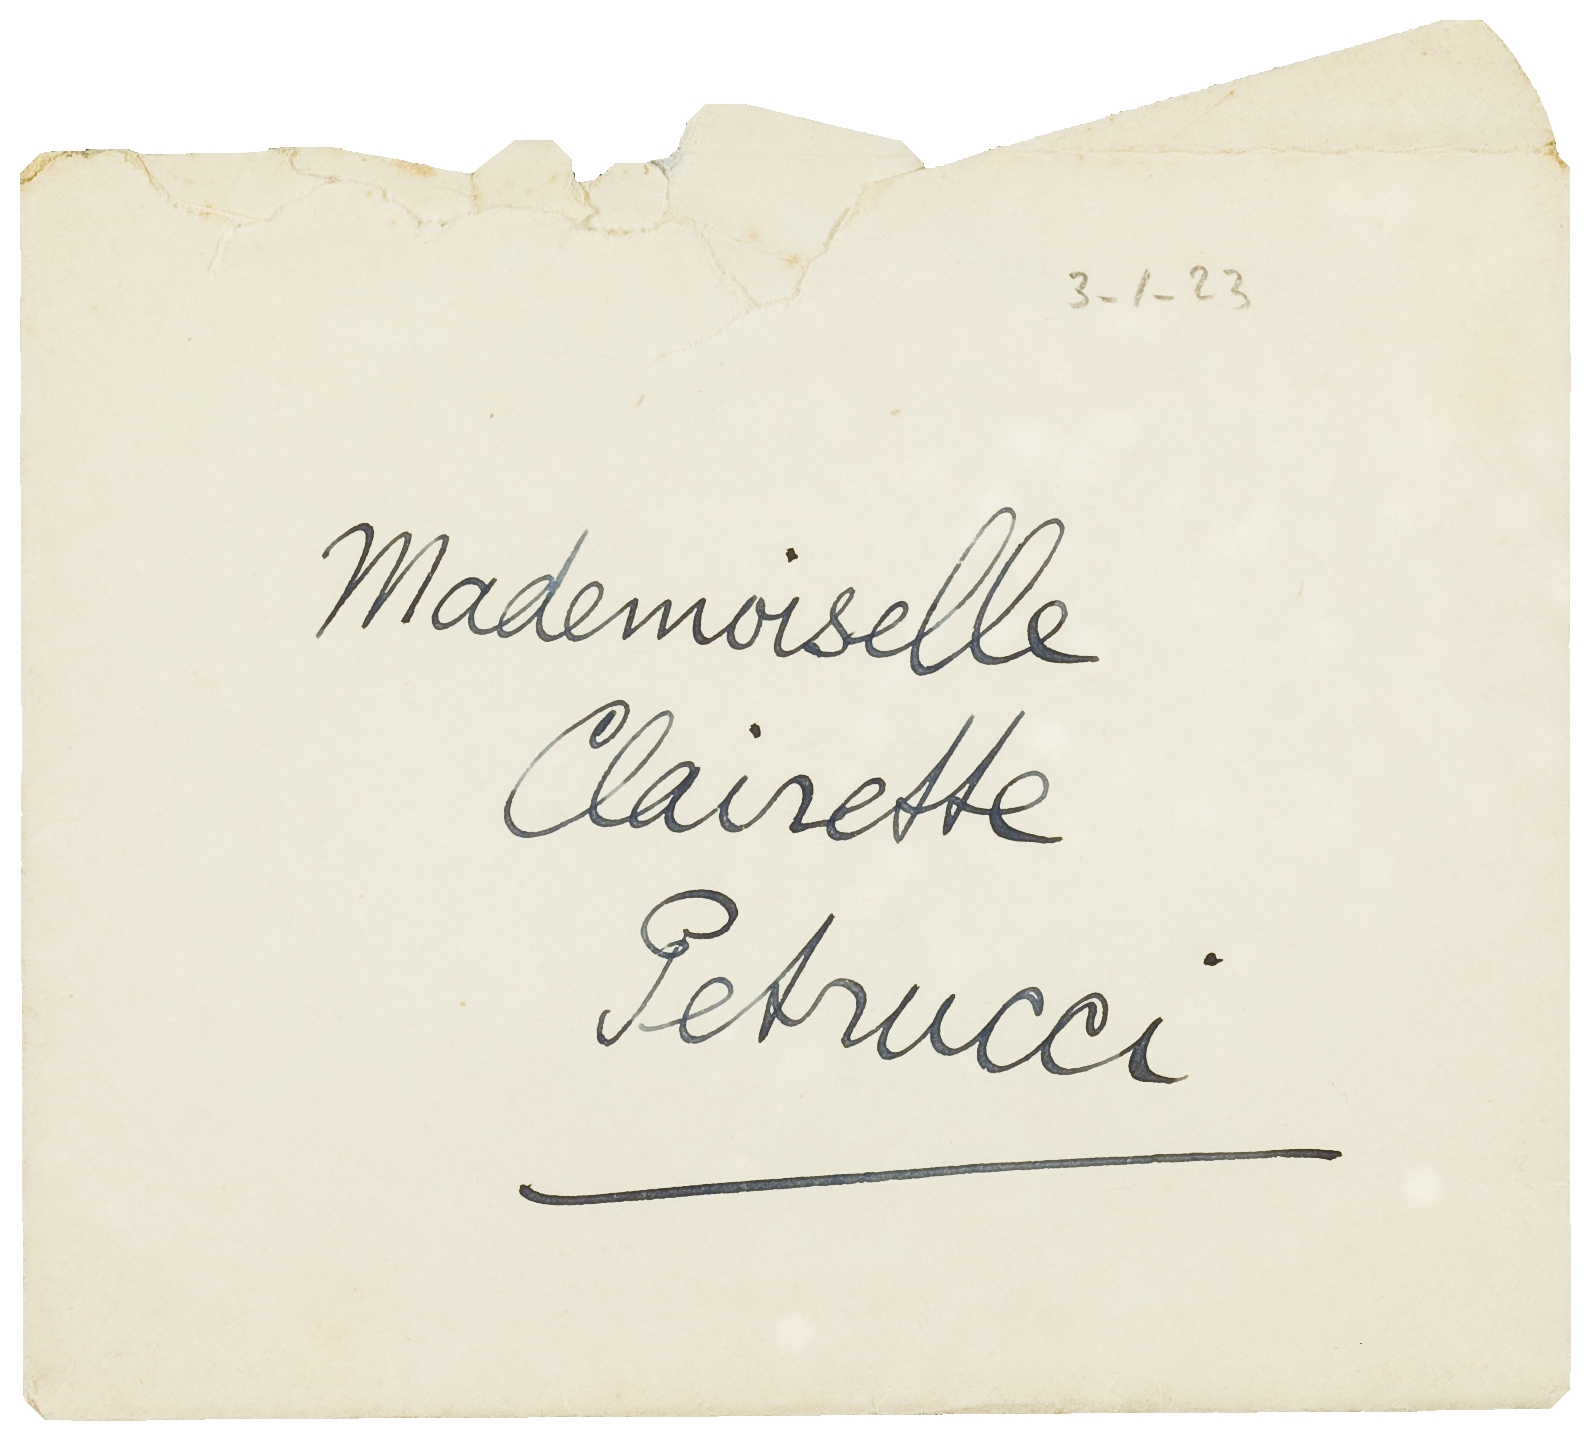 3-1-23
Mademoiselle
Clairette
Petrucci